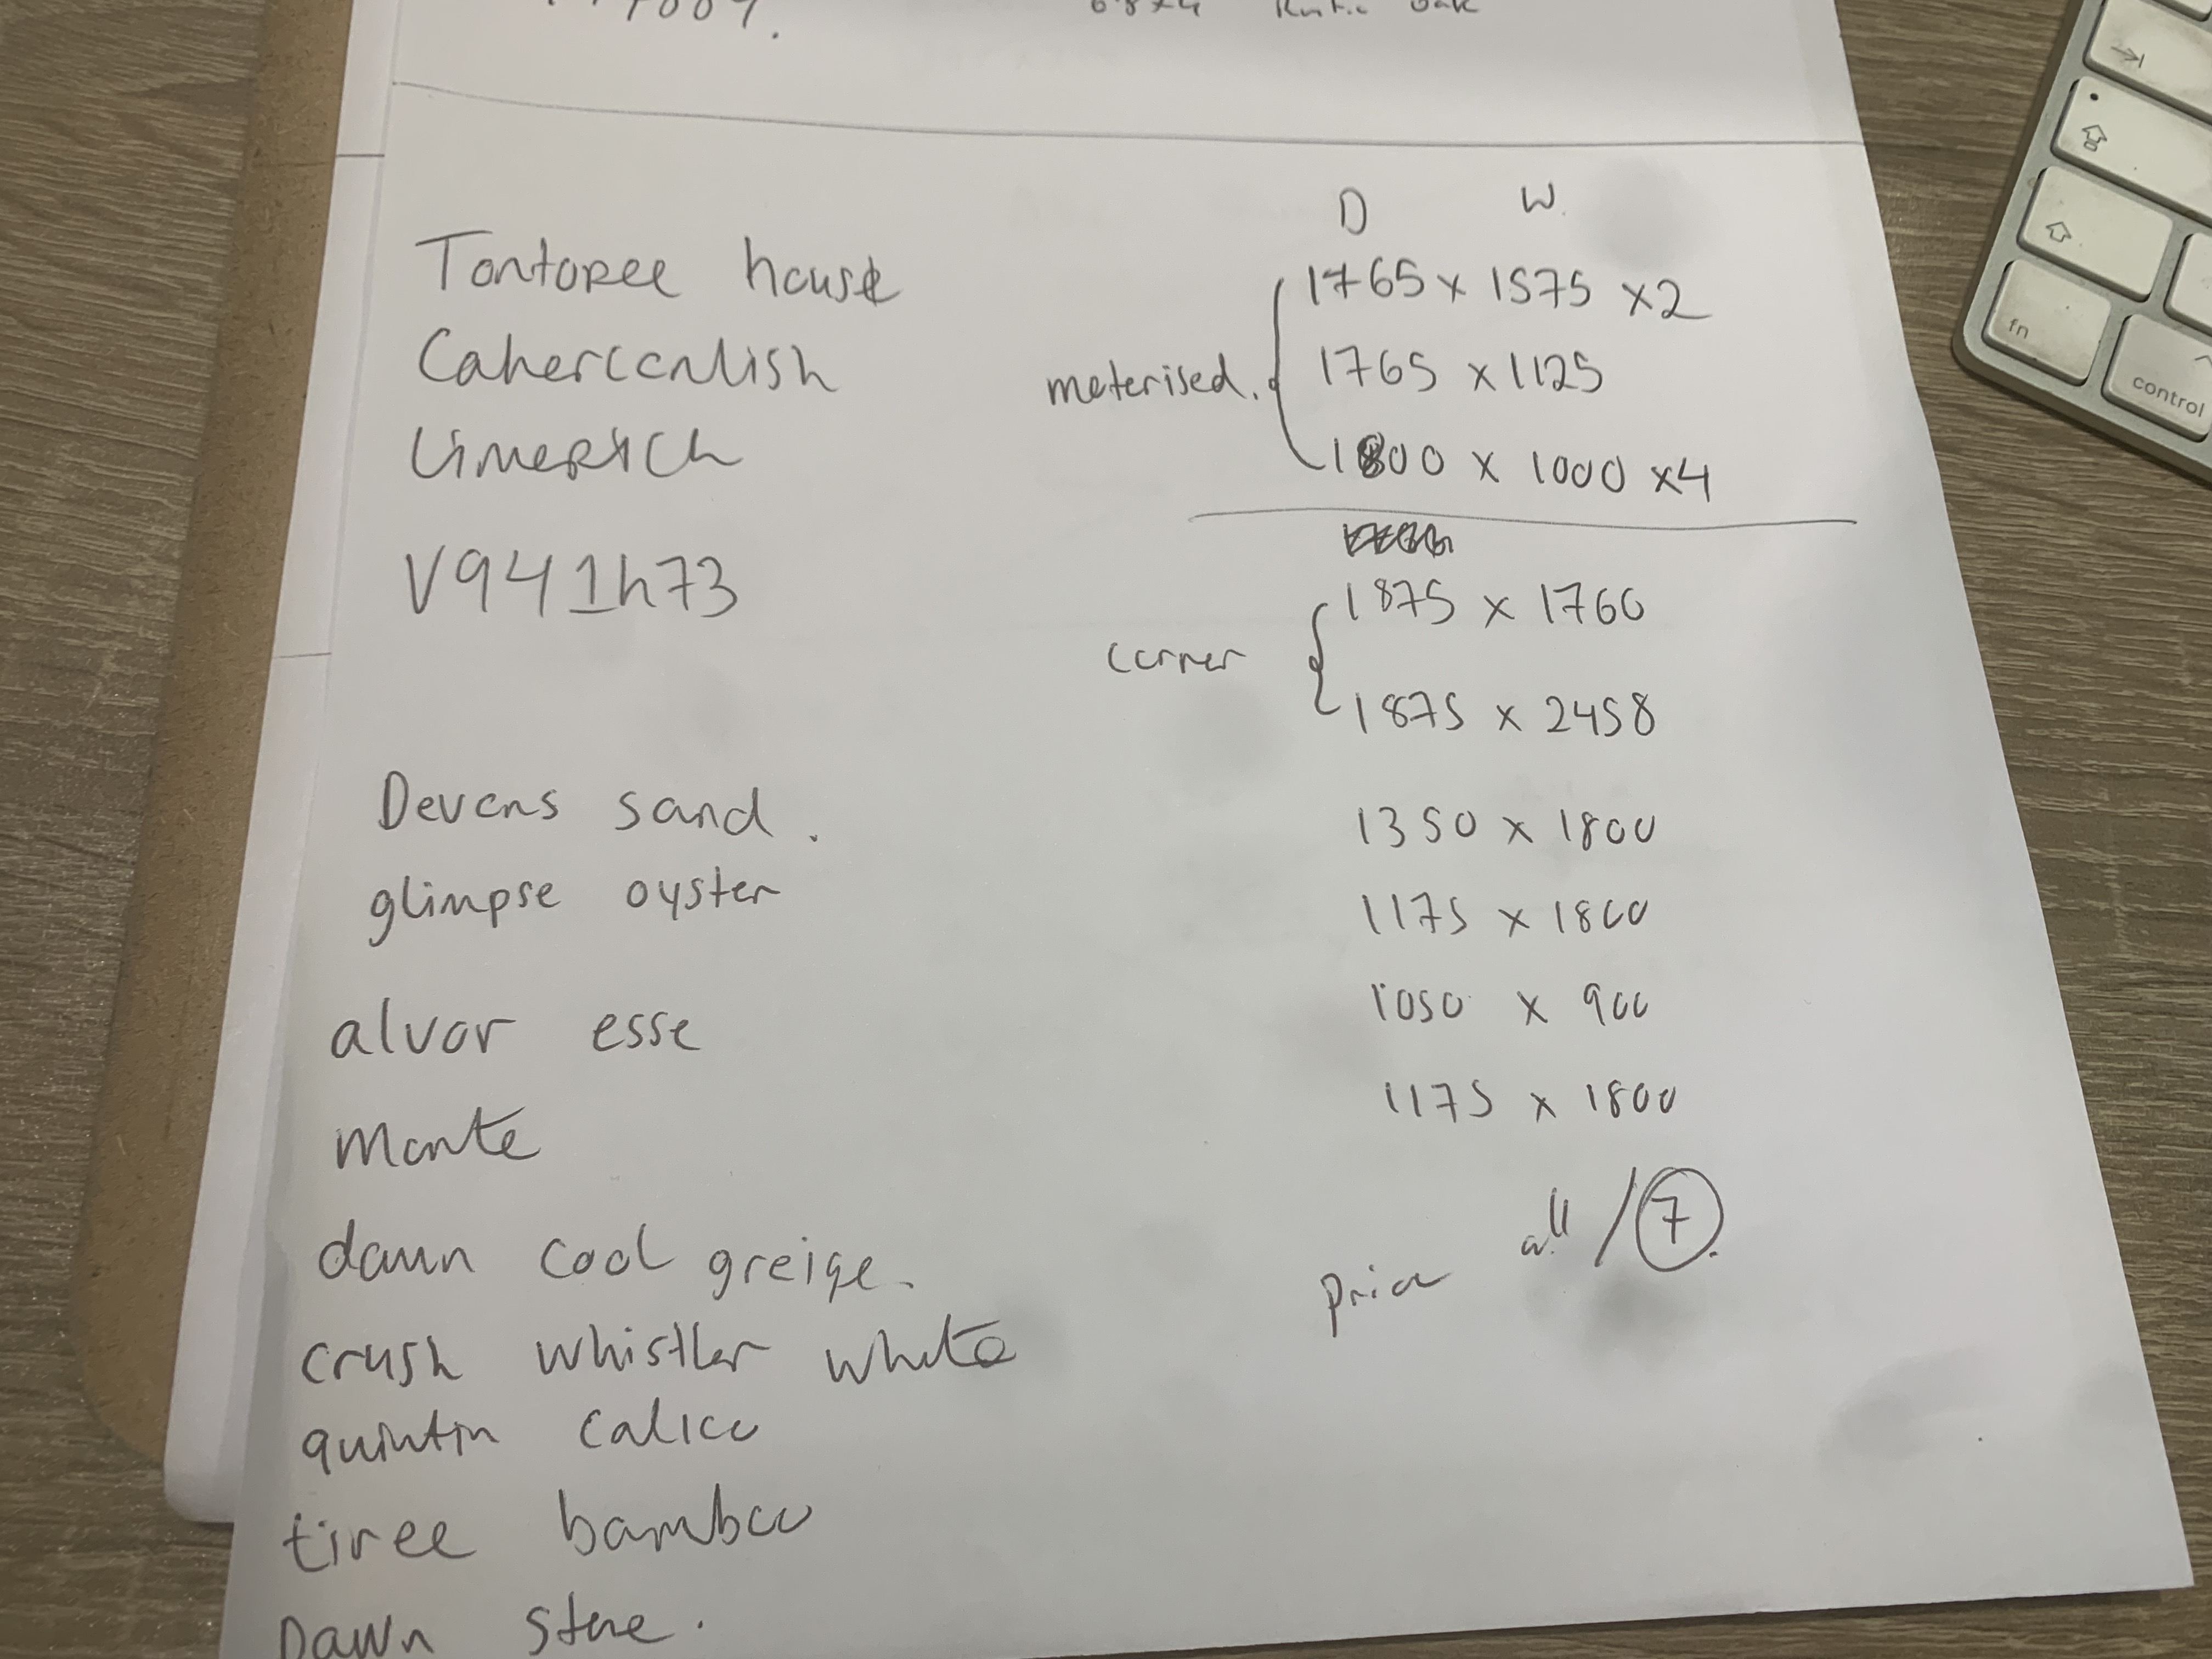 Tontoree house
Cahercenlish
Limerick
V941h73
D W.
moterised.
1765 x 1575 x2
1765 x 1125
1800 x 1000 x4
corner
1875 x 1760
1875 x 2458
1350 x 1800
1175 x 1800
1050 x 900
1175 x 1800
price all / 7.
Devons sand.
glimpse oyster
alvor esse
Monte
dawn cool greige.
crush whistler white
quintin calico
tiree bamboo
Dawn stone.
fn
control